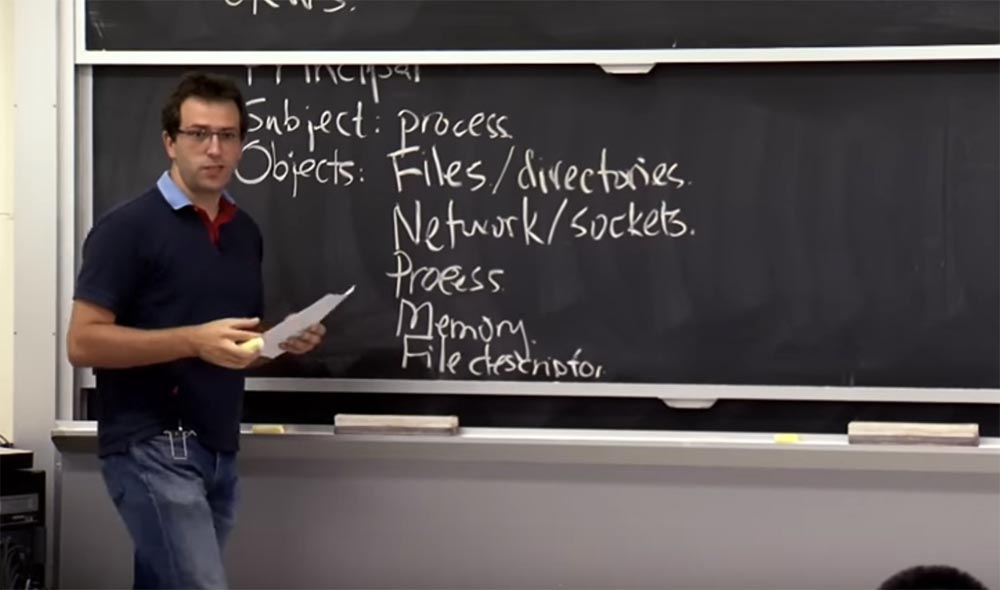 Principal
Subject: process
Objects: Files/directories.
Network/sockets.
Process
Memory.
File descriptor.